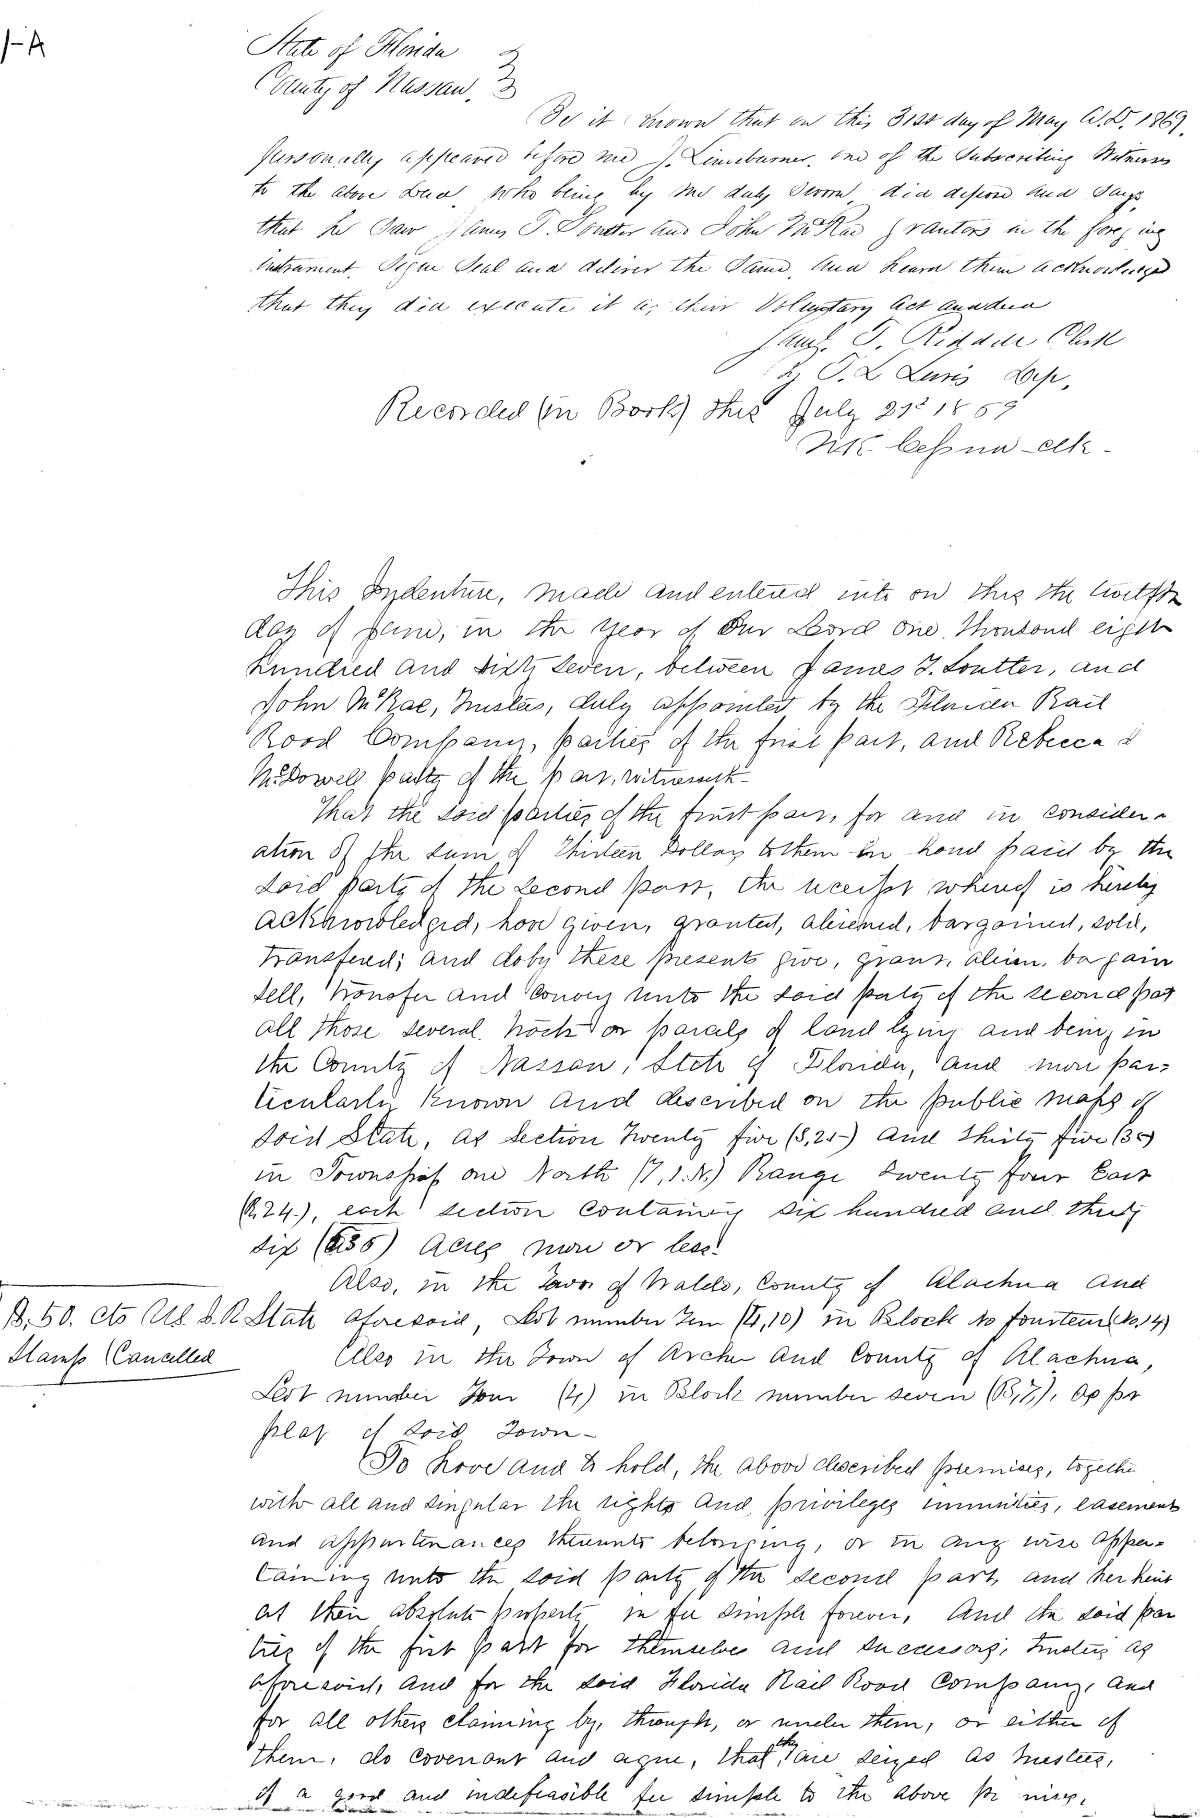 1-A
State of Florida
County of Nassau, }
Be it known that on this 31st day of May A.D. 1869,
personally appeared before me J. Lineburner, one of the Subscribing Witnesses
to the above Deed, who being by me duly Sworn, did depose and Says
that he Saw James T. Soutter and John McRae grantors in the foregoing
instrument Sign Seal and deliver the Same, and heard them acknowledge
that they did execute it as their Voluntary Act and deed
T. Riddell Clerk
by T. L. Dep,
Recorded (in Book) this July 21st 1869
Cessna - clk -
This Indenture, made and entered into on this the twelfth
day of June, in the year of Our Lord One thousand eight
hundred and sixty seven, between James T. Soutter, and
John McRae, Trustees, duly appointed by the Florida Rail
Road Company, parties of the first part, and Rebecca
McDowell party of the part, witnesseth-
That the said parties of the first part, for and in consider-
ation of the sum of Thirteen Dollars to them in hand paid by the
said party of the second part, the receipt whereof is hereby
acknowledged, have given, granted, aliened, bargained, sold,
transfered; and do by these presents give, grant, alien, bargain
sell, transfer and convey unto the said party of the second part
all those several tracts or parcels of land lying and being in
the County of Nassau, State of Florida, and more par-
ticularly known and described on the public maps of
said State, as Section Twenty five (S,25-) and Thirty five (35)
in Township one North (T,1.N.) Range twenty four East
(R,24.), each section containing six hundred and thirty
six (636) Acres more or less.
Also, in the Town of Waldo, County of Alachua and
State aforesaid, Lot number Ten (Lt,10) in Block No fourteen (No.14)
$.50. cts U.S. I.R
Stamp (Cancelled
Also in the Town of Archer and County of Alachua,
Lot number Four (4) in Block number seven (B,7,), as per
plat of said Town-
To have and to hold, the above described premises, together
with all and singular the rights and privileges immunities, easements
and appurtenances thereunto belonging, or in any wise apper-
taining unto the said party of the second part, and her heirs
as their absolute property in fee simple forever, And the said par
ties of the first part for themselves and successors, trustees as
aforesaid, and for the said Florida Rail Road Company, and
for all others claiming by, through, or under them, or either of
them, do covenant and agree, that they are seized as trustees,
of a good and indefeasible fee simple to the above premises,